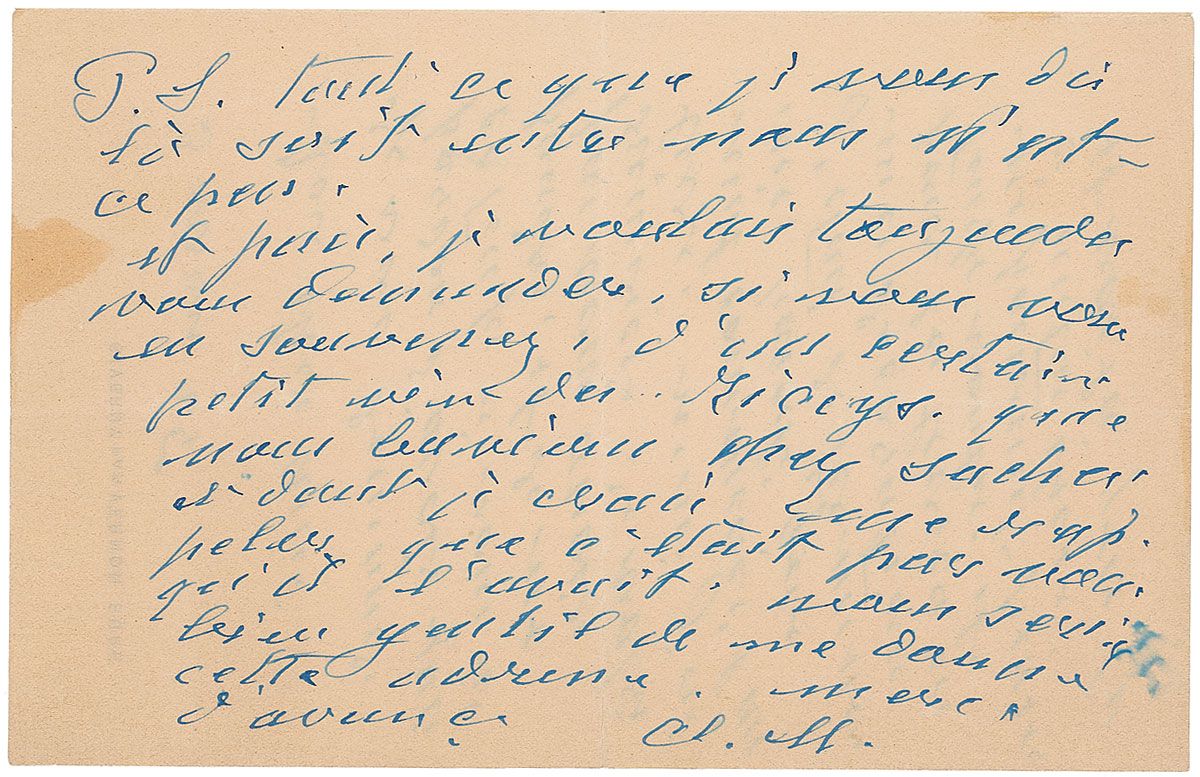 P. S. tout ce que je vous dis
là soit entre nous n'est-
ce pas.
et puis, je voulais toujours
vous demander, si vous vous
en souvenez, d'un certain
petit vin des Riceys. que
nous buvions chez
et dont je crois me rap.
peler, que c'était par vous
qu'il l'avait. vous seriez
bien gentil de me donner
cette adresse. merci
d'avance
Cl. M.